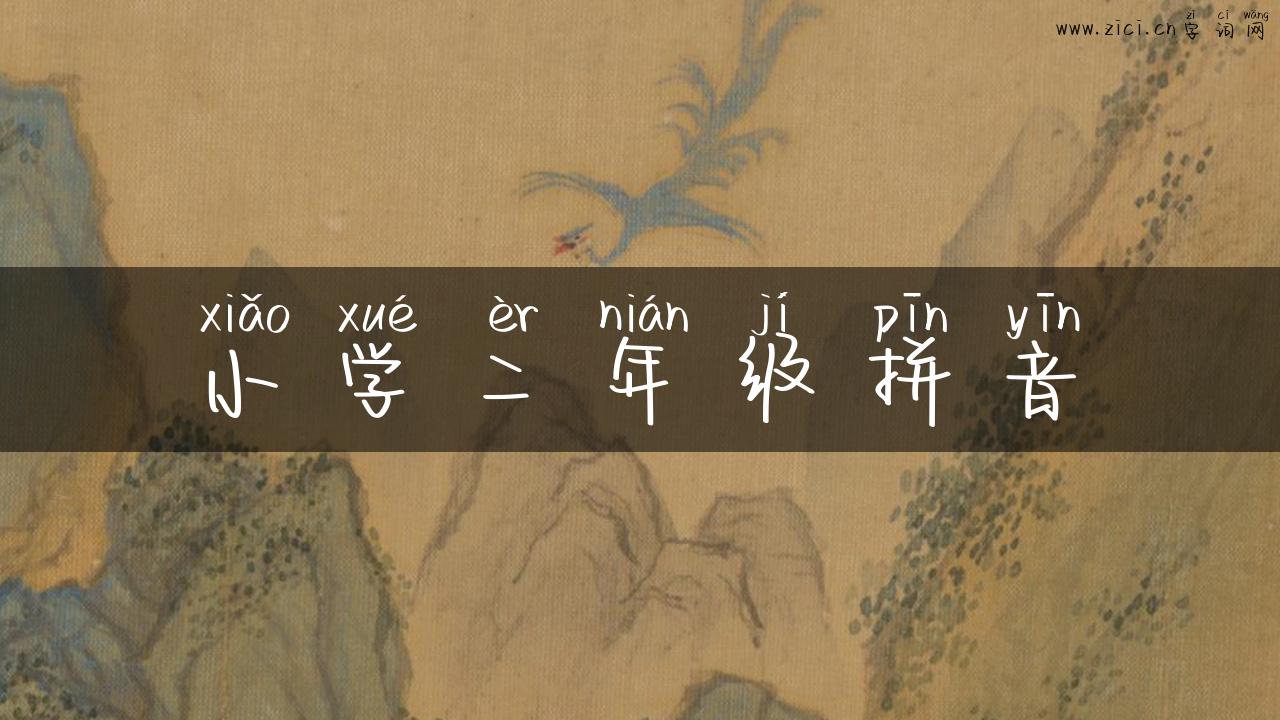 zì cí wǎng
www.zici.cn字词网
xiǎo xué èr nián jí pīn yīn
小学二年级拼音